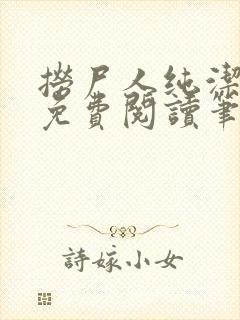 撈尸人純潔
免費閱讀筆
詩嫁小女